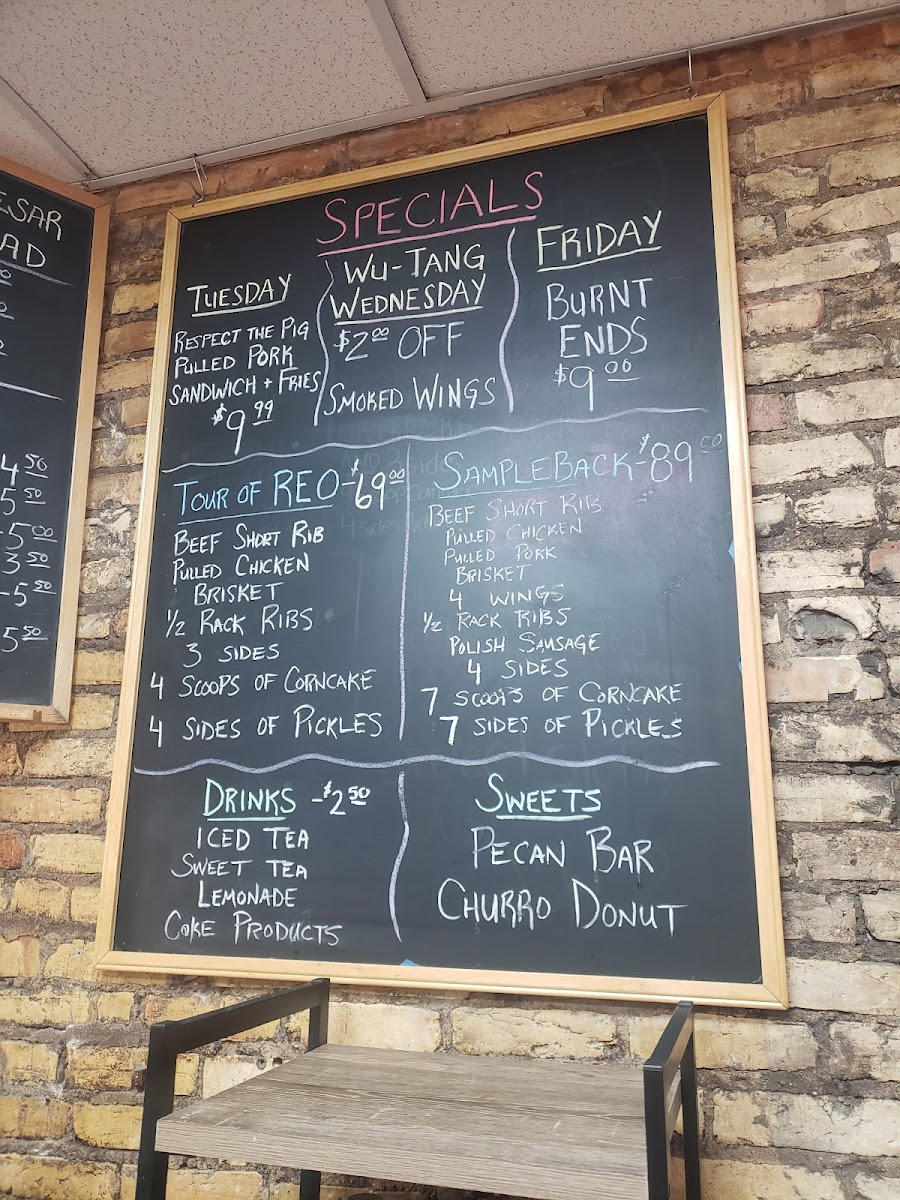 ESAR
AD
4 50
5 50
-5 00
3 50
-5 50
5 50
SPECIALS
TUESDAY
RESPECT THE PIG
PULLED PORK
SANDWICH + FRIES
$9 99
WU-TANG
WEDNESDAY
$2 00 OFF
SMOKED WINGS
FRIDAY
BURNT
ENDS
$9 00
TOUR OF REO -$69 00
BEEF SHORT RIB
PULLED CHICKEN
BRISKET
1/2 RACK RIBS
3 SIDES
4 SCOOPS OF CORNCAKE
4 SIDES OF PICKLES
SAMPLEBACK-$89 00
BEEF SHORT RIB
PULLED CHICKEN
PULLED PORK
BRISKET
4 WINGS
1/2 RACK RIBS
POLISH SAUSAGE
4 SIDES
7 SCOOPS OF CORNCAKE
7 SIDES OF PICKLES
DRINKS -$2 50
ICED TEA
SWEET TEA
LEMONADE
COKE PRODUCTS
SWEETS
PECAN BAR
CHURRO DONUT